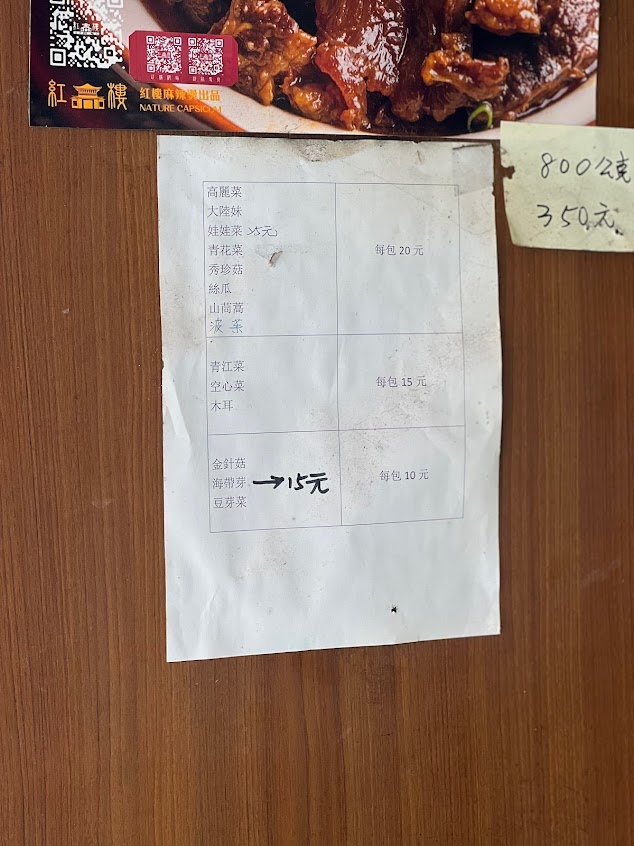 紅樓
紅樓麻辣獨出品
NATURE CAPSICUM
800公克
350元
高麗菜
大陸妹
娃娃菜 25元
青花菜
秀珍菇
絲瓜
山茼蒿
波菜
每包 20 元
青江菜
空心菜
木耳
每包 15 元
金針菇
海帶芽 →15元
豆芽菜
每包 10 元